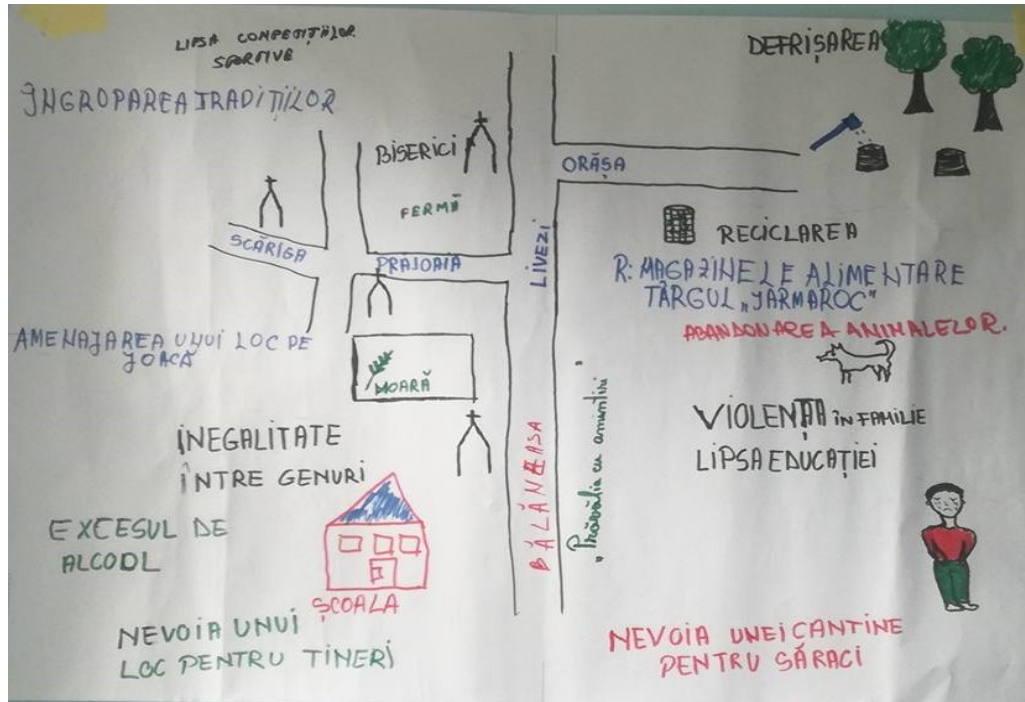 LIPSA COMPETIȚIILOR
SPORTIVE
ÎNGROPAREA TRADIȚIILOR
BISERICI
FERMĂ
SCĂRIGA
PRAJOAIA
AMENAJAREA UNUI LOC PE
JOACĂ
MOARĂ
INEGALITATE
ÎNTRE GENURI
EXCESUL DE
ALCOOL
ȘCOALA
NEVOIA UNUI
LOC PENTRU TINERI
LIVEZI
BĂLĂNEASA
„Prăvălia cu amintiri”
DEFRIȘAREA
ORĂȘA
RECICLAREA
R: MAGAZINELE ALIMENTARE
TÂRGUL „JARMAROC”
ABANDONAREA ANIMALELOR.
VIOLENȚA ÎN FAMILIE
LIPSA EDUCAȚIEI
NEVOIA UNEI CANTINE
PENTRU SĂRACI